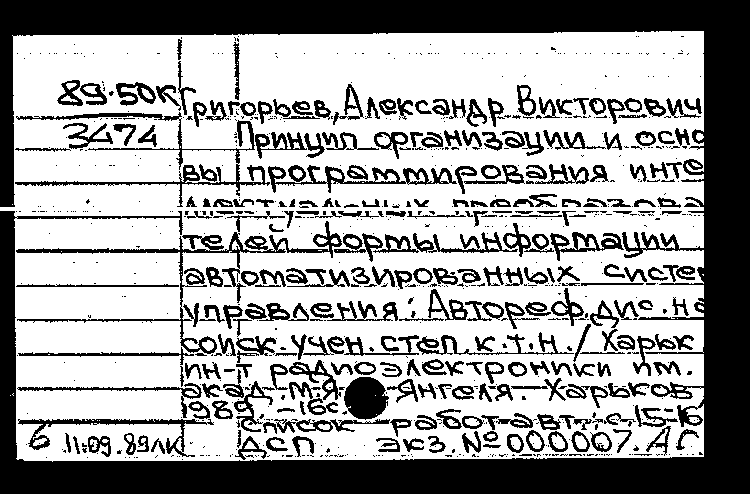 89-50К Григорьев, Александр Викторович
3474 Принцип организации и осно
вы программирования инте
ллектуальных преобразова
телей формы информации
автоматизированных систем
управления: Автореф. дис. на
соиск. учен. степ. к.т.н. / Харьк.
ин-т радиоэлектроники им.
акад. М.Я Янгеля. Харьков
1989. -16с
Список работ авт.: с.15-16
6 11.09.89 ДСП. экз. № 000007. АГ